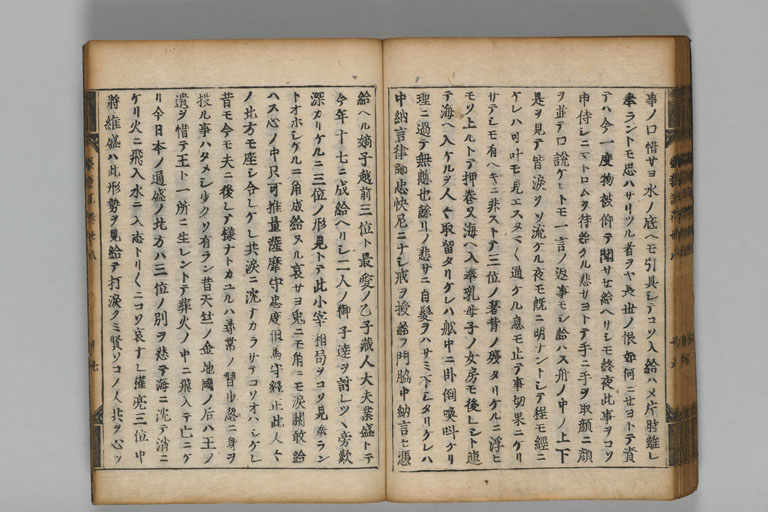 事ノ口惜サヨ水ノ底ヘモ引具シテコソ入給ハメ片時離レ
奉ラントモ思ハサリツル者ヲヤ長世ノ恨如何ニセヨトテ責
テハ今一度物被仰テ聞サセ給ヘリシモ終夜此事ヲコソ
申侍シニマトロムヲ待給ケル悲サヨトテ手ニ手ヲ取顔ニ顔
ヲ並テロ説ケレトモ一言ノ返事モシ給ハス舟ノ中ノ上下
是ヲ見テ皆涙ヲソ流ケル夜モ既ニ明ナントシテ程モ經ニ
ケレハ可叶モ見エスタヽ通ケル息モ止テ事切果ニケリ
サテシモ有ヘキニ非ストテ三位ノ著背ノ殘タリケルニ浮ヒ
モソ上ルトテ押卷又海ヘ入奉乳母子ノ女房モ後レシト連
テ海ヘ入ケルヲ人々取留タリケレハ舷中ニ卧倒喚叫ケリ
理ニ過テ無慙也餘リノ悲サニ自髮ヲハサミ下シタリケレハ
中納言律師忠快尼ニナシ戒ヲ授給フ門脇中納言ヒ憑
給ヘル嫡子越前三位ト最愛ノ乙子藏人大夫業盛トテ
今年十七ニ成給ヘリシ二人ノ御子達ヲ討レツヽ旁歎
深カリケルニ三位ノ形見トテ此小宰相局ヲコソ見奉ラン
トオホシケルニ角成給ヌル哀サヨ兎ニモ角ニモ涙關敢給
ハス心ノ中只可推量薩摩守忠度但馬守經正此人々
ノ北方モ座シ合レケレ共涙ニ沈ナカラサテコソオハシケレ
昔モ今モ夫ニ後レテ様ナトカユルハ尋常ノ習歩忽ニ身ヲ
投ル事ハタメシ少クソ有ラン昔天竺ノ金地國ノ后ハ王ノ
遺ヲ惜テ王ト一所ニ生レントテ葬火ノ中ニ飛入テ亡ニケ
リ今日本ノ通盛ノ北方ハ三位ノ別ヲ悲テ海ニ沈テ消ニ
ケリ火ニ飛入水ニ入志トリ〳〵ニコソ哀ナレ權亮三位中
將維盛ハ此形勢ヲ見給テ打涙クミ賢ソコノ人共ヲ心ッ